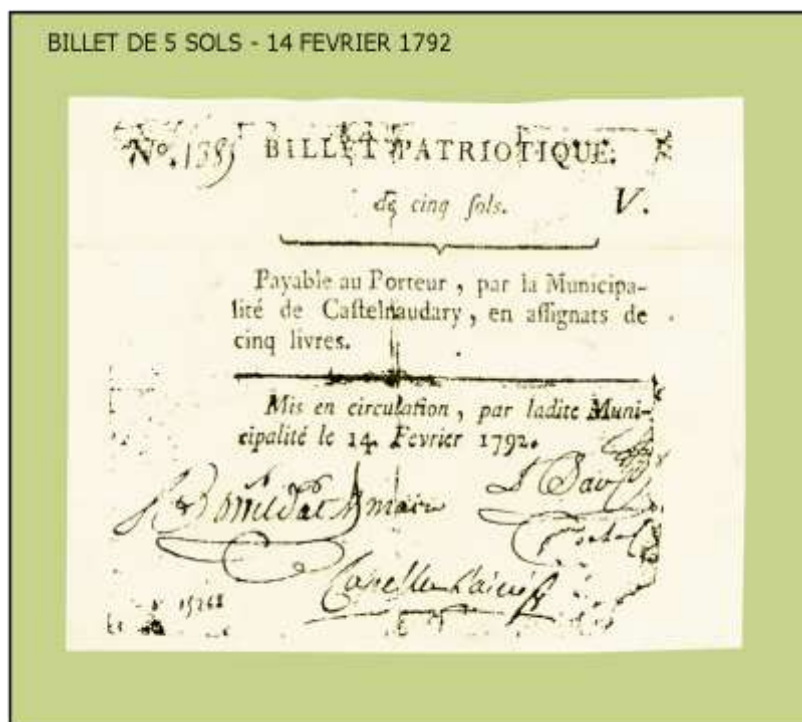 BILLET DE 5 SOLS - 14 FEVRIER 1792
Nº. 1385 BILLET PATRIOTIQUE.
de cinq ſols. V.
Payable au Porteur, par la Municipa-
lité de Caſtelnaudary, en aſſignats de
cinq livres.
Mis en circulation, par ladite Muni-
cipalité le 14. Fevrier 1792.
maire
15268